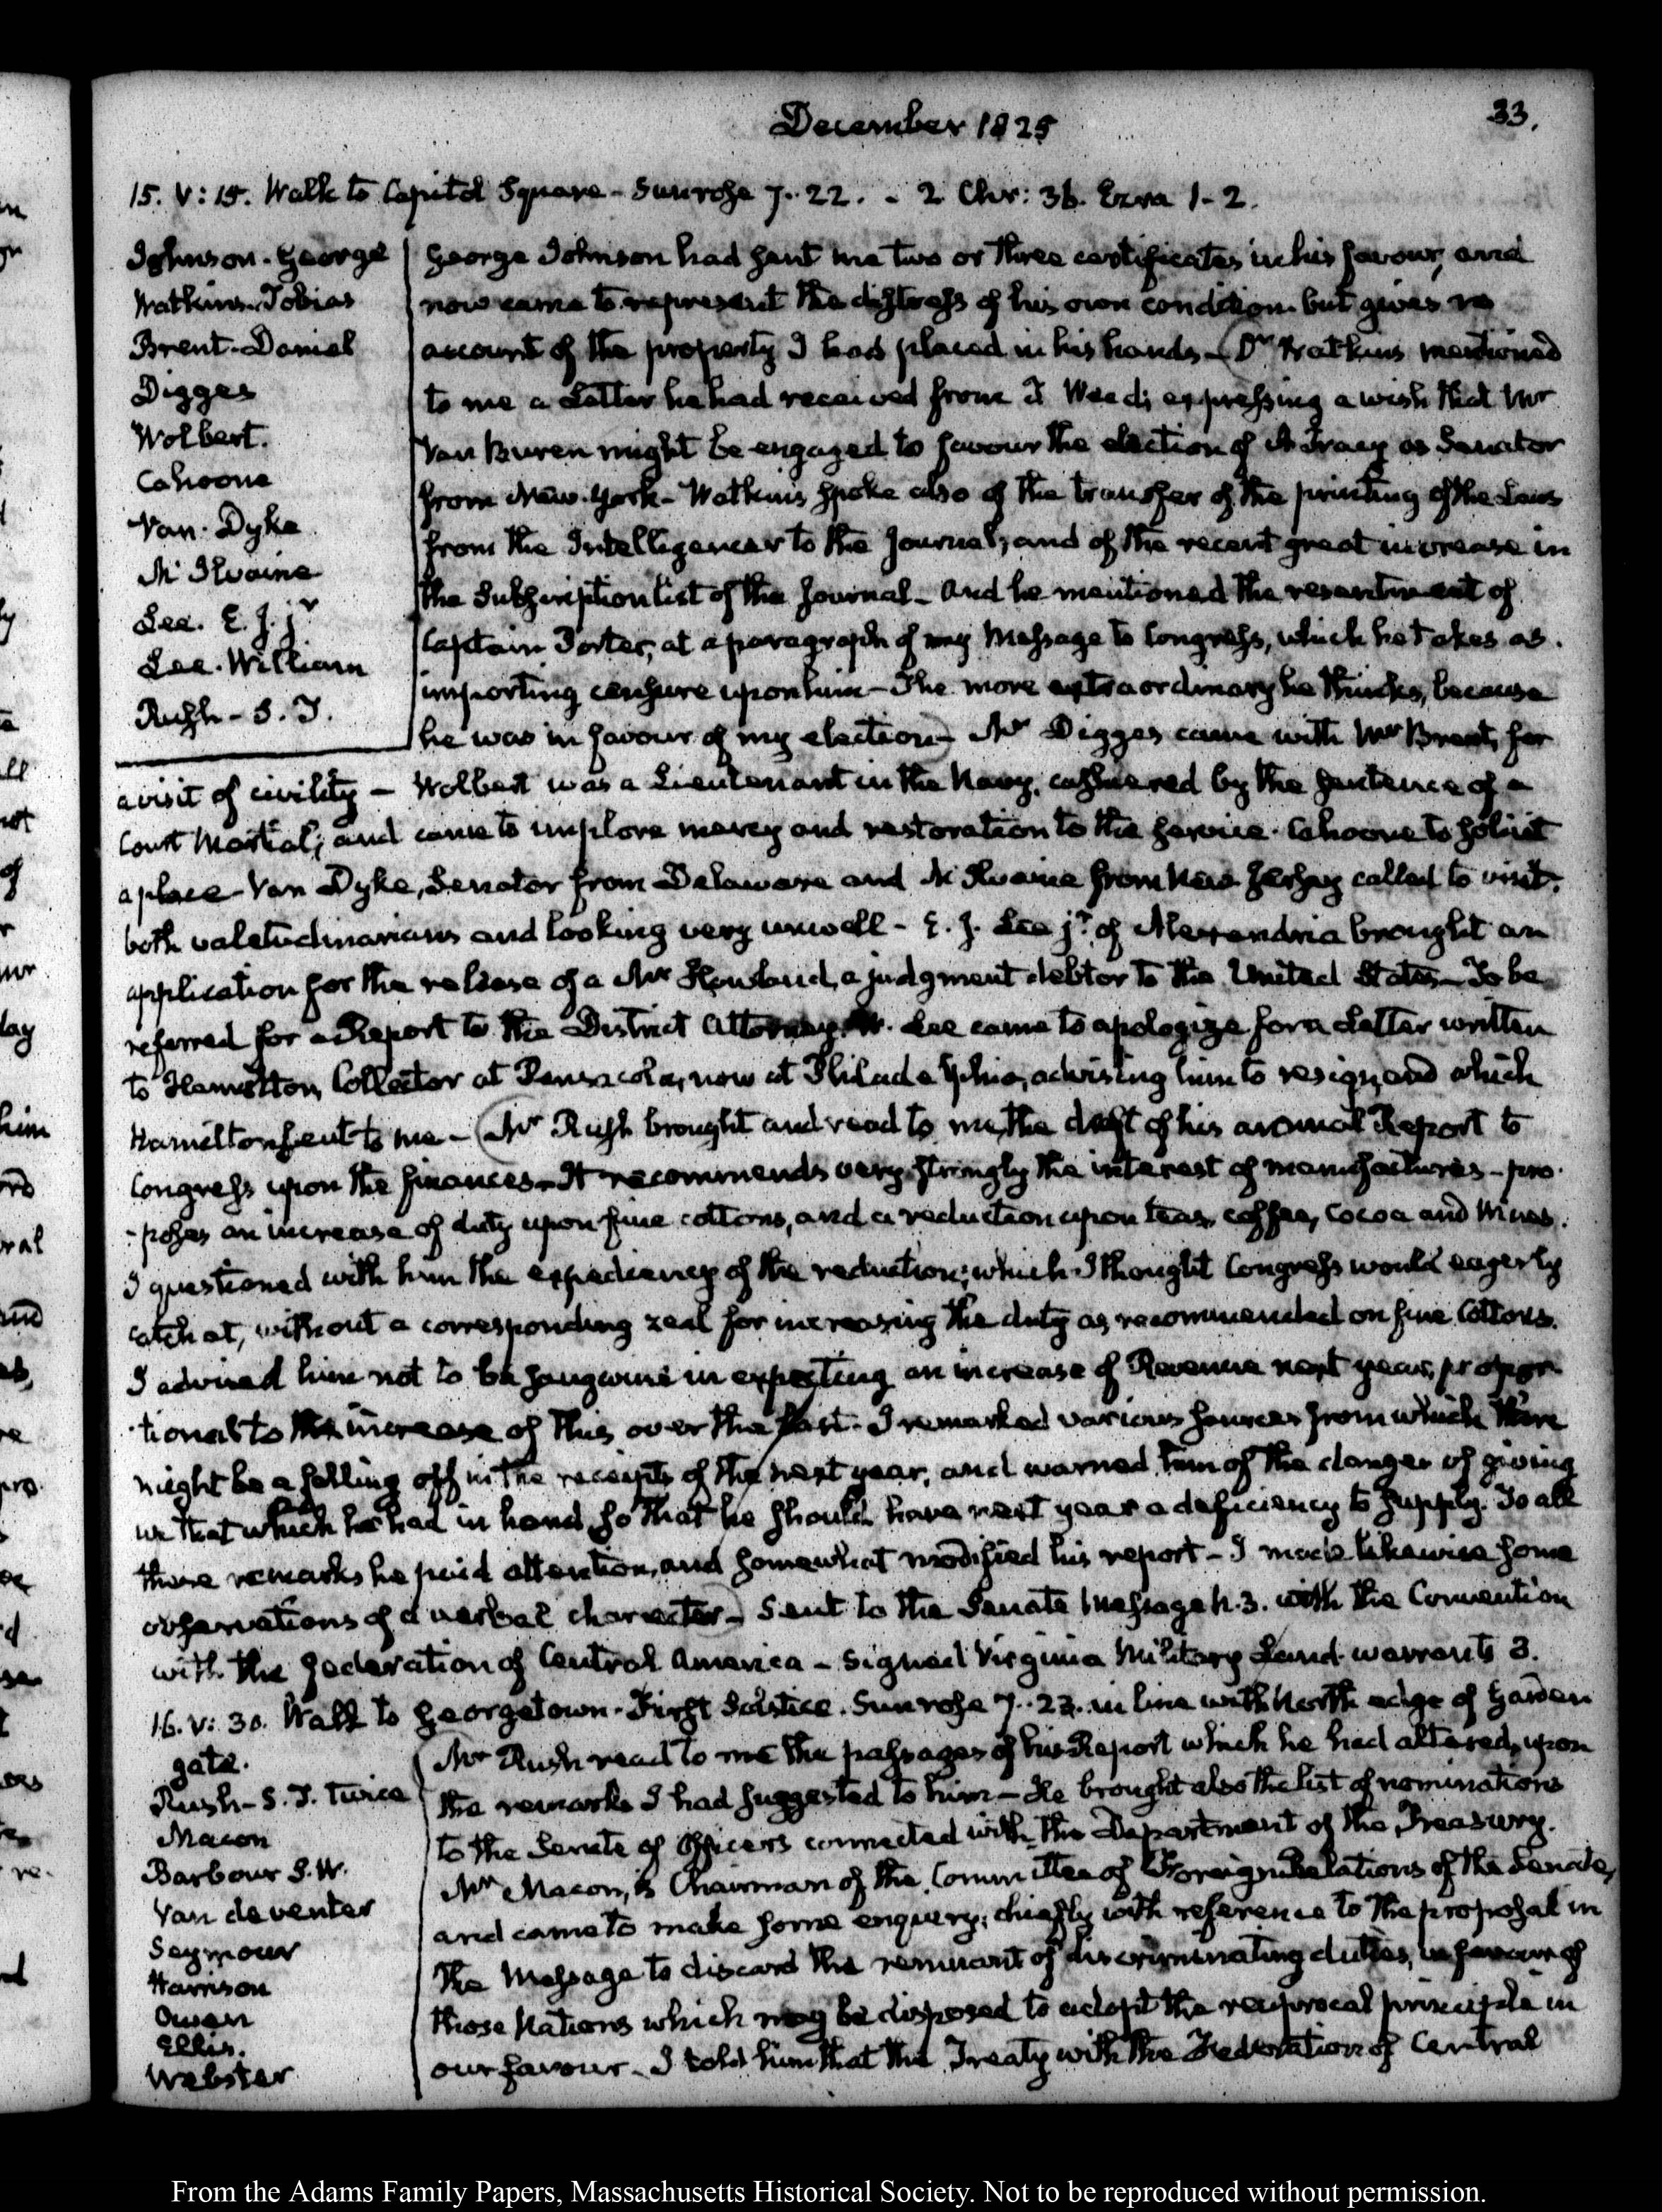 December 1825
33.
15. V: 15. Walk to Capitol Square - Sun rose 7..22. - 2 Chr: 36. Ezra 1-2.
Johnson. George
Watkins. Tobias
Brent. Daniel
Digges
Wolbert.
Cahoone
Van. Dyke
McIlvaine
Lee. E. J. jr
Lee. William
Rush - S. T.
George Johnson had sent me two or three certificates in his favour, and
now came to represent the distress of his own condition but gives no
account of the property I had placed in his hands - Dr Watkins mentioned
to me a Letter he had received from T Weed; expressing a wish that Mr
Van Buren might be engaged to favour the election of A Tracy as Senator
from New-York - Watkins spoke also of the transfer of the printing of the Laws
from the Intelligencer to the Journal; and of the recent great increase in
the Subscription list of the Journal - and he mentioned the resentment of
Captain Porter, at a paragraph of my Message to Congress, which he takes as
importing censure upon him - The more extraordinary he thinks, because
he was in favour of my election - Mr Digges came with Mr Brent, for
a visit of civility - Wolbert was a Lieutenant in the Navy, cashiered by the sentence of a
Court Martial; and came to implore mercy and restoration to the service. Cahoone to solicit
a place - Van Dyke, Senator from Delaware and McIlvaine from New Jersey called to visit.
both valetudinarians and looking very unwell - E. J. Lee jr. of Alexandria brought an
application for the release of a Mr Rowland, a judgment debtor to the United States - To be
referred for a Report to the District Attorney. W. Lee came to apologize for a Letter written
to Hamilton, Collector at Pensacola, now at Philadelphia, advising him to resign, and which
Hamilton sent to me - Mr Rush brought and read to me, the draft of his annual Report to
Congress upon the finances - It recommends very strongly the interest of manufactures - pro-
-poses an increase of duty upon fine cottons, and a reduction upon teas, coffee, Cocoa and Wines.
I questioned with him the expediency of the reduction; which I thought Congress would eagerly
catch at, without a corresponding zeal for increasing the duty as recommended on fine Cottons.
I advised him not to be sanguine in expecting an increase of Revenue next year, propor-
-tional to the increase of this over the last - I remarked various sources from which there
might be a falling off in the receipts of the next year, and warned him of the danger of giving
up that which he had in hand, so that he should have next year a deficiency to supply. To all
these remarks he paid attention, and somewhat modified his report - I made likewise some
observations of a verbal character - Sent to the Senate Message N. 3. with the Convention
with the Federation of Central America - Signed Virginia Military Land-warrants 3.
16. V: 30. Walk to Georgetown. First Solstice. Sun rose 7..23. in line with North edge of Garden
gate.
Rush - S. T. twice
Macon
Barbour S. W.
Van deventer
Seymour
Harrison
Owen
Ellis.
Webster
Mr Rush read to me the passages of his Report which he had altered, upon
the remarks I had suggested to him - He brought also the list of nominations
to the Senate of Officers connected with the Department of the Treasury.
Mr Macon, is Chairman of the Committee of Foreign Relations of the Senate,
and came to make some enquiry; chiefly with reference to the proposal in
the Message to discard the remnant of discriminating duties, in favour of
those Nations which may be disposed to adopt the reciprocal principle in
our favour - I told him that the Treaty with the Federation of Central
From the Adams Family Papers, Massachusetts Historical Society. Not to be reproduced without permission.